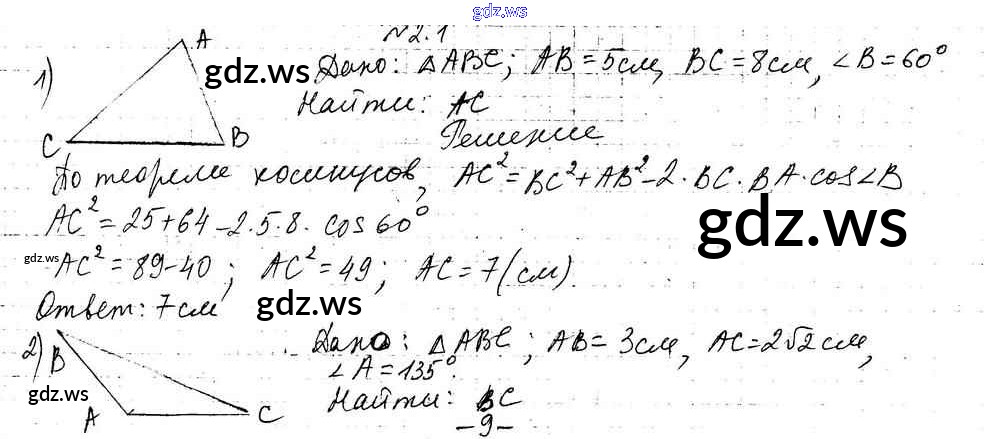 gdz.ws
№2.1
1) A Дано: △ABC; AB=5см, BC=8см, ∠B=60°
gdz.ws
Найти: AC
C B Решение
По теореме косинусов, AC²=BC²+AB²-2·BC·BA·cos∠B
AC²=25+64-2·5·8·cos60°
gdz.ws
gdz.ws
AC²=89-40; AC²=49; AC=7(см).
Ответ: 7см
gdz.ws
2) B Дано: △ABC; AB=3см, AC=2√2см,
∠A=135°.
gdz.ws
A C Найти: BC
-9-